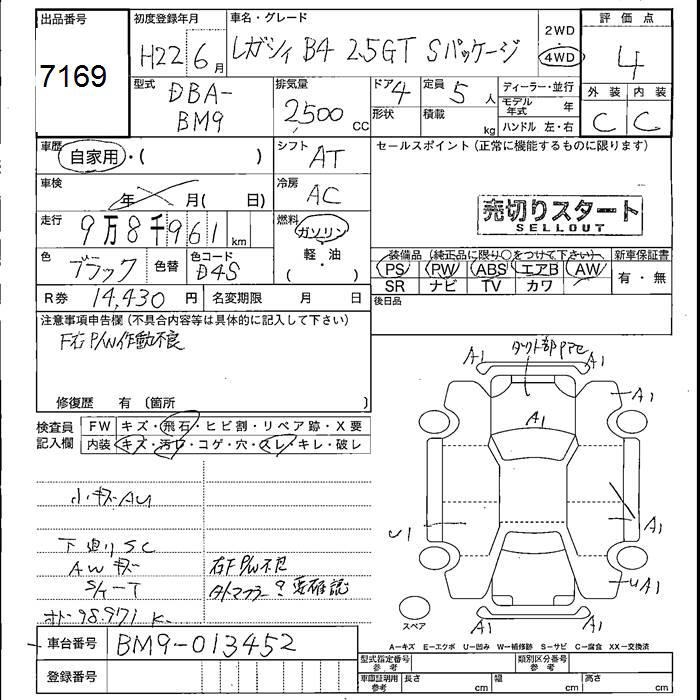 出品番号
7169
初度登録年月
H22 6月
車名・グレード
レガシィ B4 2.5GT Sパッケージ
2WD
4WD
評価点
4
外装 内装
C C
型式
DBA-
BM9
排気量
2,500 CC
ドア 4
形状
定員 5 人
積載 kg
ディーラー・並行
モデル年式 年
ハンドル 左・右
車歴
自家用・( )
シフト AT
セールスポイント (正常に機能するものに限ります)
車検 年 月( 日)
冷房 AC
売切りスタート
SELLOUT
走行 9万8千961 km
燃料
ガソリン
軽・油
( )
色 ブラック
色替
色コード
D4S
装備品 (純正品に限り○をつけて下さい)
新車保証書
PS PW ABS エアB AW
有・無
SR ナビ TV カワ
R券 14,430 円
名変期限 月 日
後日品
注意事項申告欄 (不具合内容等は具体的に記入して下さい)
F右P/W作動不良
修復歴 有 (箇所 )
検査員
記入欄
FW キズ・飛石・ヒビ割・リペア跡・X要
内装 キズ・汚れ・コゲ・穴・スレ・キレ・破レ
小キズAU
下廻りSC
AWキズ
S/ケート
オドー98,971K
右FP/W不良
要確認
A1
A1
A1
A1
A1
U1
A1
UA1
A1
A1
スペア
A-キズ E-エクボ U-凹み W-補修跡 S-サビ C-腐食 XX-交換済
車台番号 BM9-013452
登録番号
型式指定番号
参考
類別区分番号
参考
車庫証明用
参考
長さ cm
幅 cm
高さ cm